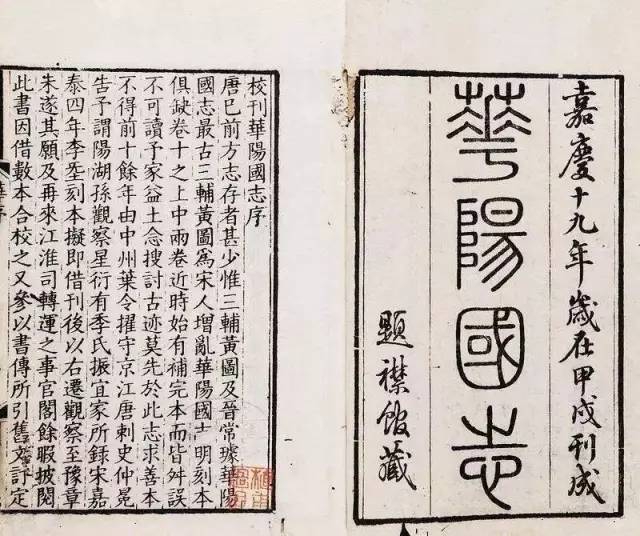 嘉慶十九年歲在甲戌刊成
華陽國志
題襟館藏
校刊華陽國志序
唐已前方志存者甚少惟三輔黃圖及晉常璩華陽
國志最古三輔黃圖爲宋人增亂華陽國志明刻本
俱缺卷十之上中兩卷近時始有補完本而皆舛誤
不可讀予家益土念搜討古迹莫先於此志求善本
不得前十餘年由中州葉令擢守京江唐刺史仲冕
告予謂陽湖孫觀察星衍有季氏振宜家所錄宋嘉
泰四年李刻本擬即借刊後以右遷觀察至豫章
未遂其願及再來江淮司轉運之事官閣餘暇披閱
此書因借數本合校之又參以書傳所引舊文評定